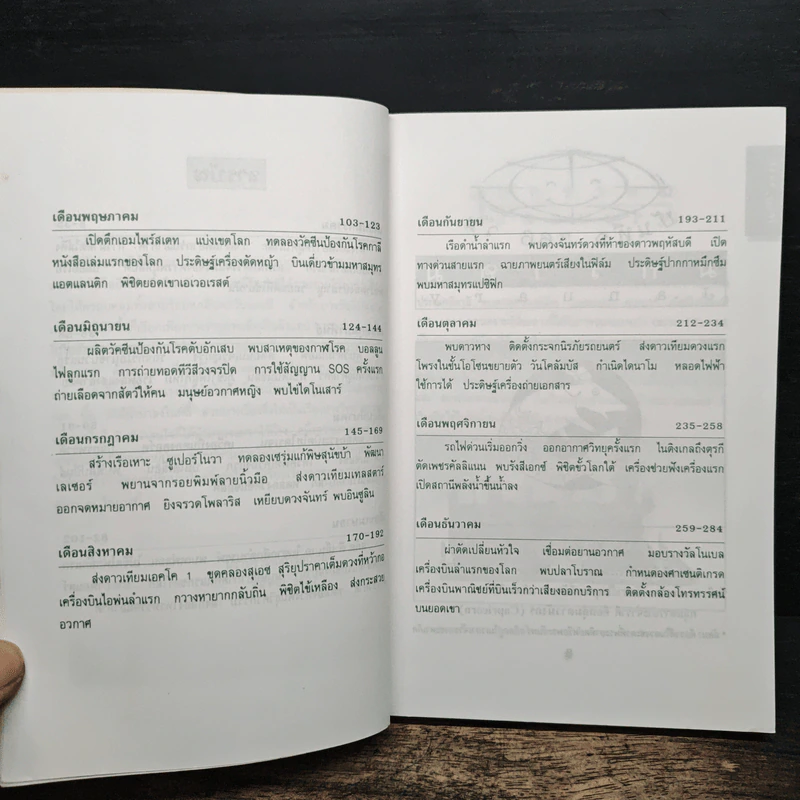 เดือนพฤษภาคม 103-123
เปิดตึกเอมไพร์สเตท แบ่งเขตโลก ทดลองวัคซีนป้องกันโรคกาลี
หนังสือเล่มแรกของโลก ประดิษฐ์เครื่องตัดหญ้า บินเดี่ยวข้ามมหาสมุทร
แอตแลนติก พิชิตยอดเขาเอเวอเรสต์
เดือนมิถุนายน 124-144
ผลิตวัคซีนป้องกันโรคตับอักเสบ พบสาเหตุของกาฬโรค บอลลูน
ไฟลูกแรก การถ่ายทอดทีวีสีวงจรปิด การใช้สัญญาณ SOS ครั้งแรก
ถ่ายเลือดจากสัตว์ให้คน มนุษย์อวกาศหญิง พบไข่ไดโนเสาร์
เดือนกรกฎาคม 145-169
สร้างเรือเหาะ ซูเปอร์โนวา ทดลองเซรุ่มแก้พิษสุนัขบ้า พัฒนา
เลเซอร์ พยานจากรอยพิมพ์ลายนิ้วมือ ส่งดาวเทียมเทลสตาร์
ออกจดหมายอากาศ ยิงจรวดโพลาริส เหยียบดวงจันทร์ พบอินซูลิน
เดือนสิงหาคม 170-192
ส่งดาวเทียมเอคโค 1 ขุดคลองสุเอซ สุริยุปราคาเต็มดวงที่หว้ากอ
เครื่องบินไอพ่นลำแรก กวางหายากกลับถิ่น พิชิตไข้เหลือง ส่งกระสวย
อวกาศ
เดือนกันยายน 193-211
เรือดำน้ำลำแรก พบดวงจันทร์ดวงที่ห้าของดาวพฤหัสบดี เปิด
ทางด่วนสายแรก ฉายภาพยนตร์เสียงในฟิล์ม ประดิษฐ์ปากกาหมึกซึม
พบมหาสมุทรแปซิฟิก
เดือนตุลาคม 212-234
พบดาวหาง ติดตั้งกระจกนิรภัยรถยนตร์ ส่งดาวเทียมดวงแรก
โพรงในชั้นโอโซนขยายตัว วันโคลัมบัส กำเนิดไดนาโม หลอดไฟฟ้า
ใช้การได้ ประดิษฐ์เครื่องถ่ายเอกสาร
เดือนพฤศจิกายน 235-258
รถไฟด่วนเริ่มออกวิ่ง ออกอากาศวิทยุครั้งแรก ไนติงเกลถึงตุรกี
ตัดเพชรคัลลิแนน พบรังสีเอกซ์ พิชิตขั้วโลกใต้ เครื่องช่วยฟังเครื่องแรก
เปิดสถานีพลังน้ำขึ้นน้ำลง
เดือนธันวาคม 259-284
ผ่าตัดเปลี่ยนหัวใจ เชื่อมต่อยานอวกาศ มอบรางวัลโนเบล
เครื่องบินลำแรกของโลก พบปลาโบราณ กำหนดองศาเซนติเกรด
เครื่องบินพาณิชย์ที่บินเร็วกว่าเสียงออกบริการ ติดตั้งกล้องโทรทรรศน์
บนยอดเขา